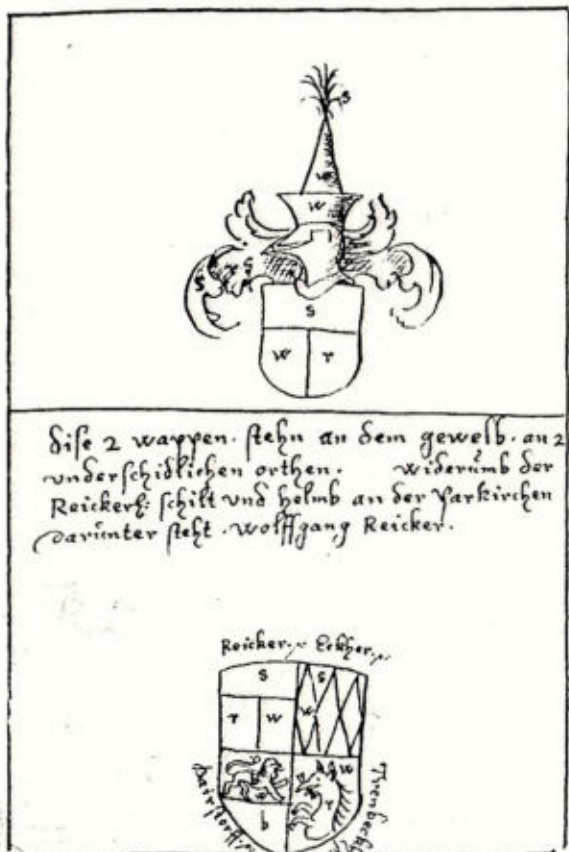 S
W
W
S
S
W r
dise 2 wappen. stehn an dem gewelb. an 2
vnderschidlichen orthen. widerumb der
Reickerh: schilt vnd helmb an der Parkirchen
darunter steht. Wolffgang Reicker.
Reicker. Eckher.
S S
r w w
W
r
b